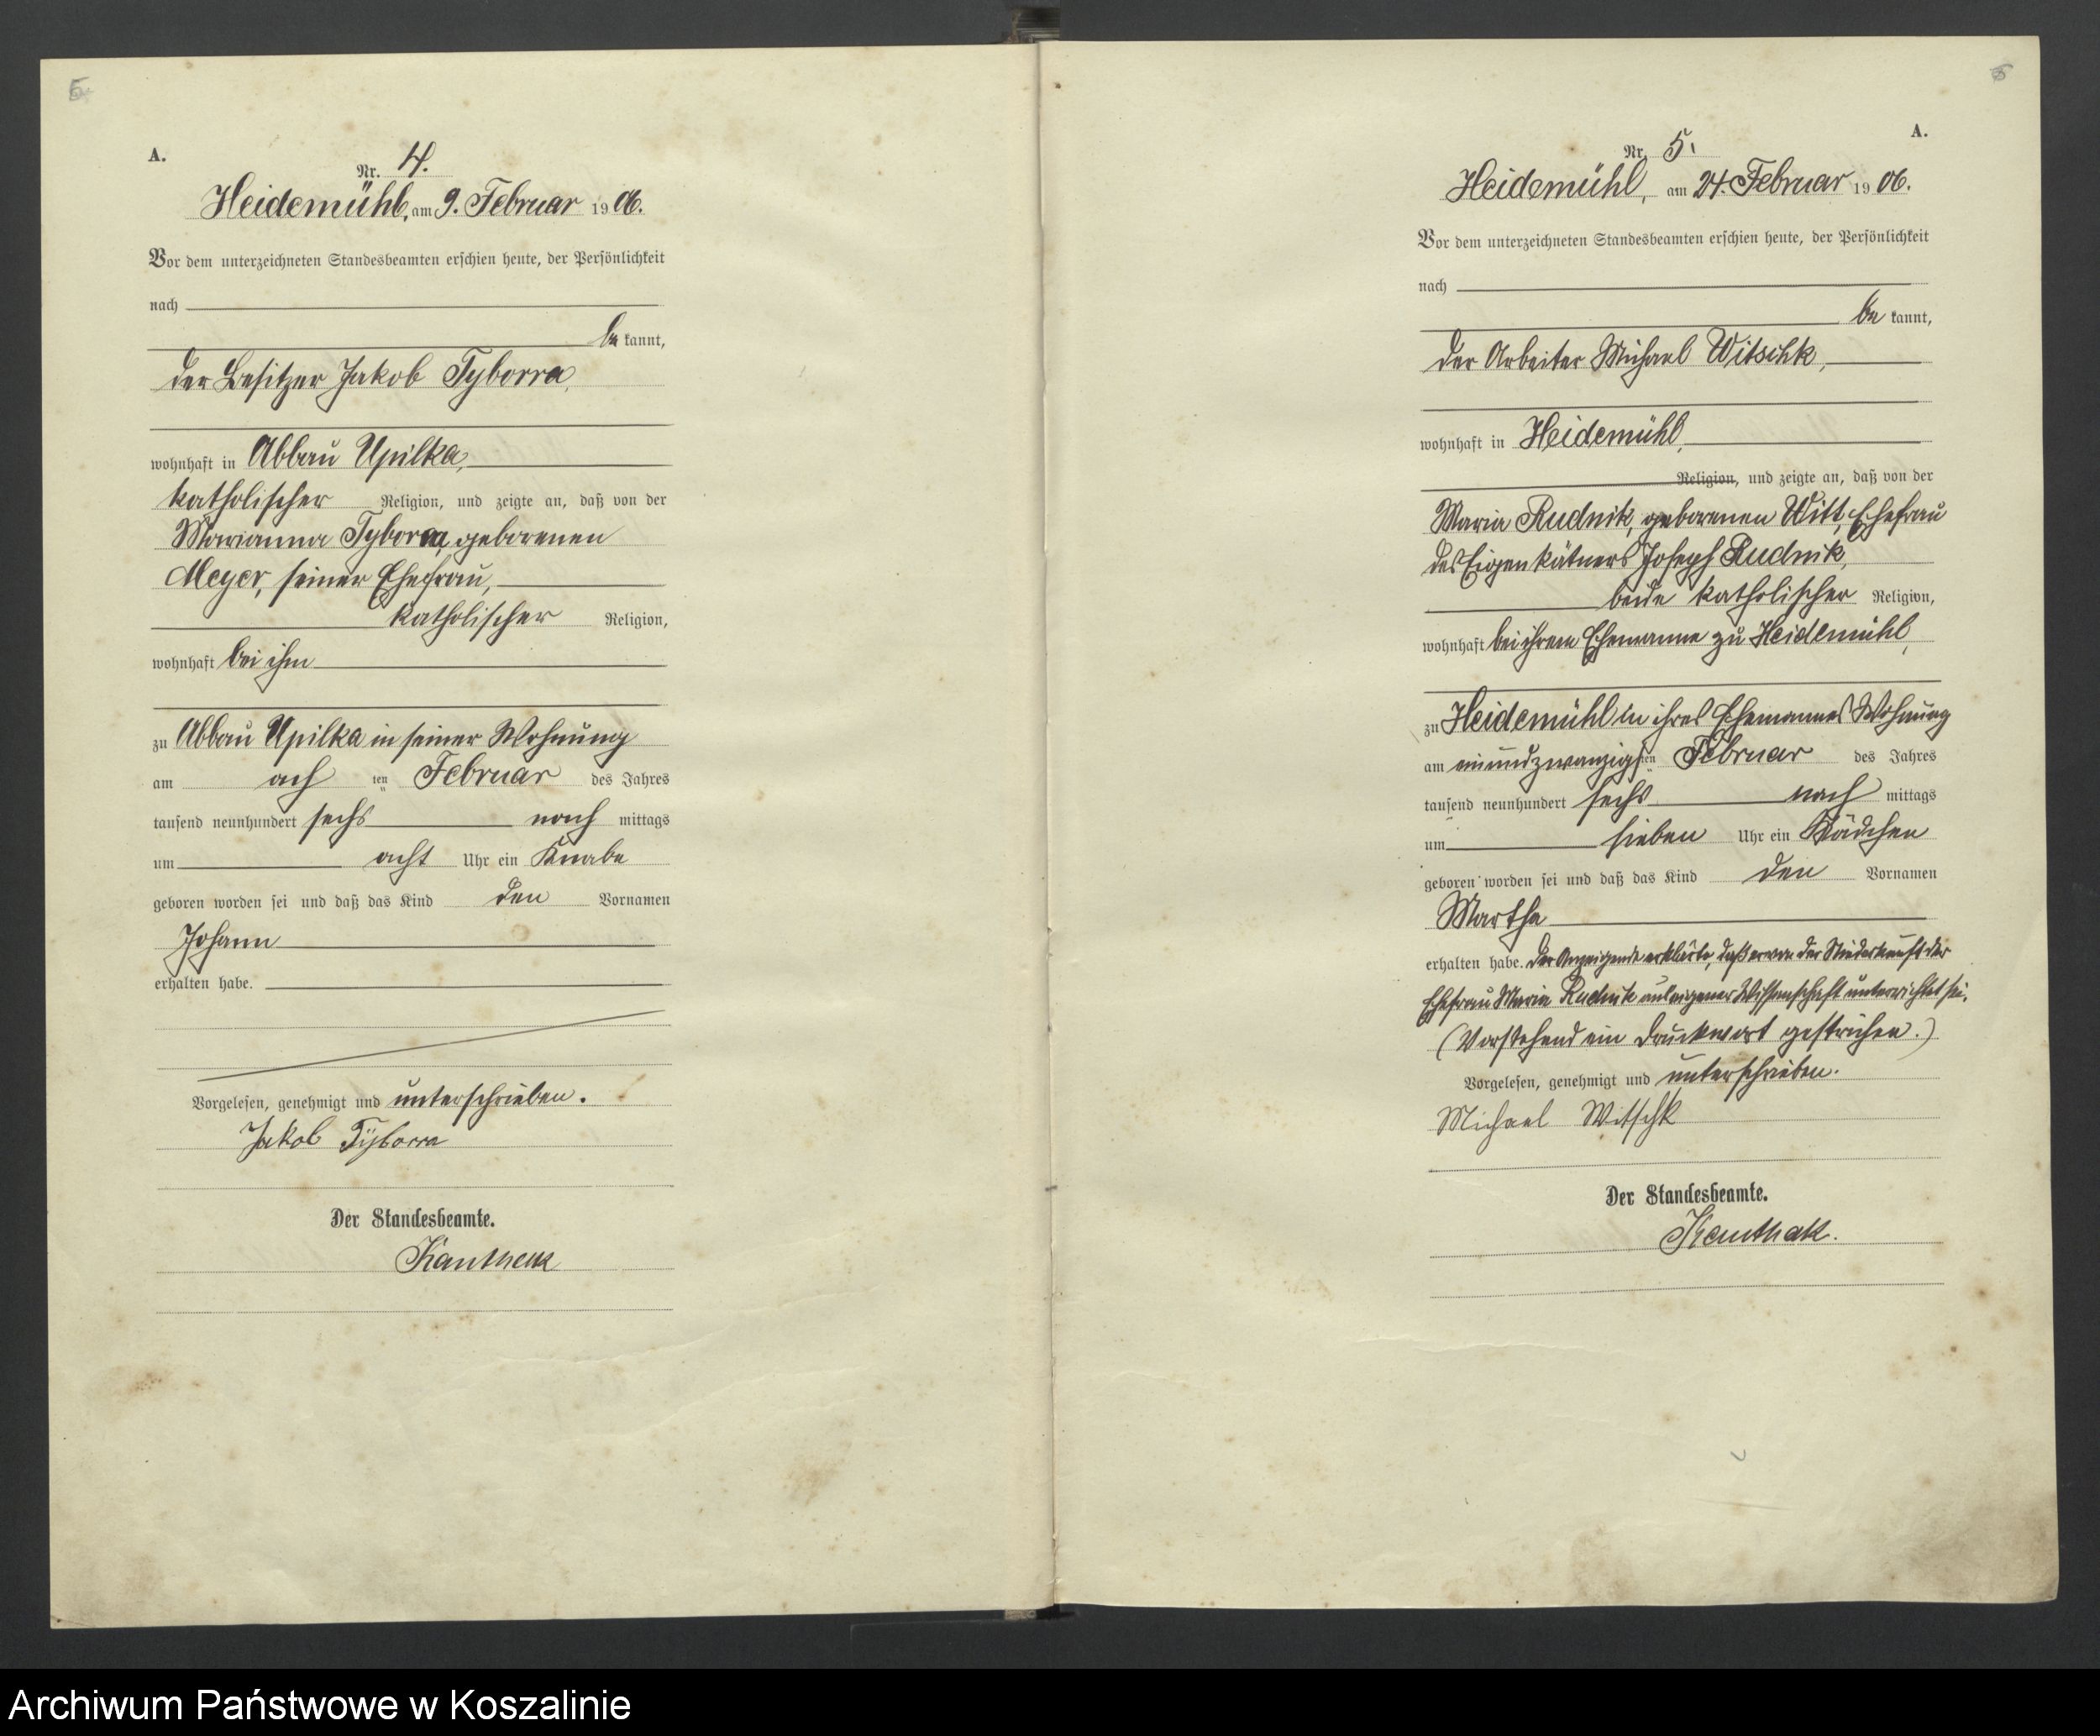 A.
Nr. 4.
Heidemühl, am 9. Februar 1906.
Vor dem unterzeichneten Standesbeamten erschien heute, der Persönlichkeit
nach
be kannt,
der Besitzer Jakob Tyborra,
wohnhaft in Abbau Upilka,
katholischer Religion, und zeigte an, daß von der
Marianna Tyborra, geborenen
Meyer, seiner Ehefrau,
katholischer Religion,
wohnhaft bei ihm
zu Abbau Upilka in seiner Wohnung
am ach ten Februar des Jahres
tausend neunhundert sechs nach mittags
um acht Uhr ein Knabe
geboren worden sei und daß das Kind den Vornamen
Johann
erhalten habe.
Vorgelesen, genehmigt und unterschrieben.
Jakob Tyborra
Der Standesbeamte.
A.
Nr. 5.
Heidemühl, am 24. Februar 1906.
Vor dem unterzeichneten Standesbeamten erschien heute, der Persönlichkeit
nach
be kannt,
der Arbeiter Michael Witschk,
wohnhaft in Heidemühl,
Religion, und zeigte an, daß von der
Maria Rudnik, geborenen Witt, Ehefrau
des Eigenkätners Joseph Rudnik,
beide katholischer Religion,
wohnhaft bei ihrem Ehemanne zu Heidemühl,
zu Heidemühl in ihres Ehemannes Wohnung
am einundzwanzigsten Februar des Jahres
tausend neunhundert sechs nach mittags
um sieben Uhr ein Mädchen
geboren worden sei und daß das Kind den Vornamen
Martha
erhalten habe. Der Anzeigende erklärte, daß er von der Niederkunft der
Ehefrau Maria Rudnik aus eigener Wissenschaft unterrichtet sei.
(Vorstehend ein Druckwort gestrichen.)
Vorgelesen, genehmigt und unterschrieben.
Michael Witschk
Der Standesbeamte.
Archiwum Państwowe w Koszalinie